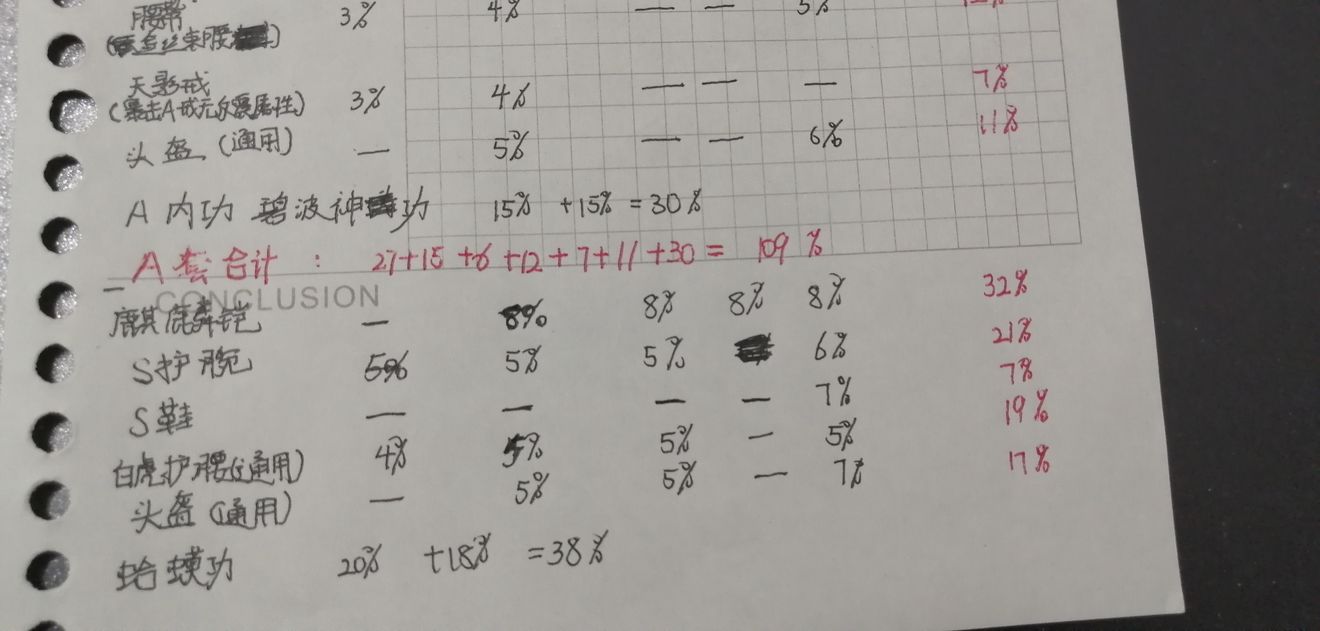 腰带 3% 4% — — 5% 12%
(金丝束腰)
天影戒 3% 4% — — — 7%
(暴击A或元尔爱属性)
头盔(通用) — 5% — — 6% 11%
A内功 碧波神功 15% +15% =30%
A套合计: 27+15+6+12+7+11+30= 109%
CONCLUSION
麒麟铠 — 8% 8% 8% 8% 32%
S护腕 5% 5% 5% 6% 21%
S鞋 — — — — 7% 7%
白虎护腰(通用) 4% 5% 5% — 5% 19%
头盔(通用) — 5% 5% — 7% 17%
蛤蟆功 20% +18% =38%